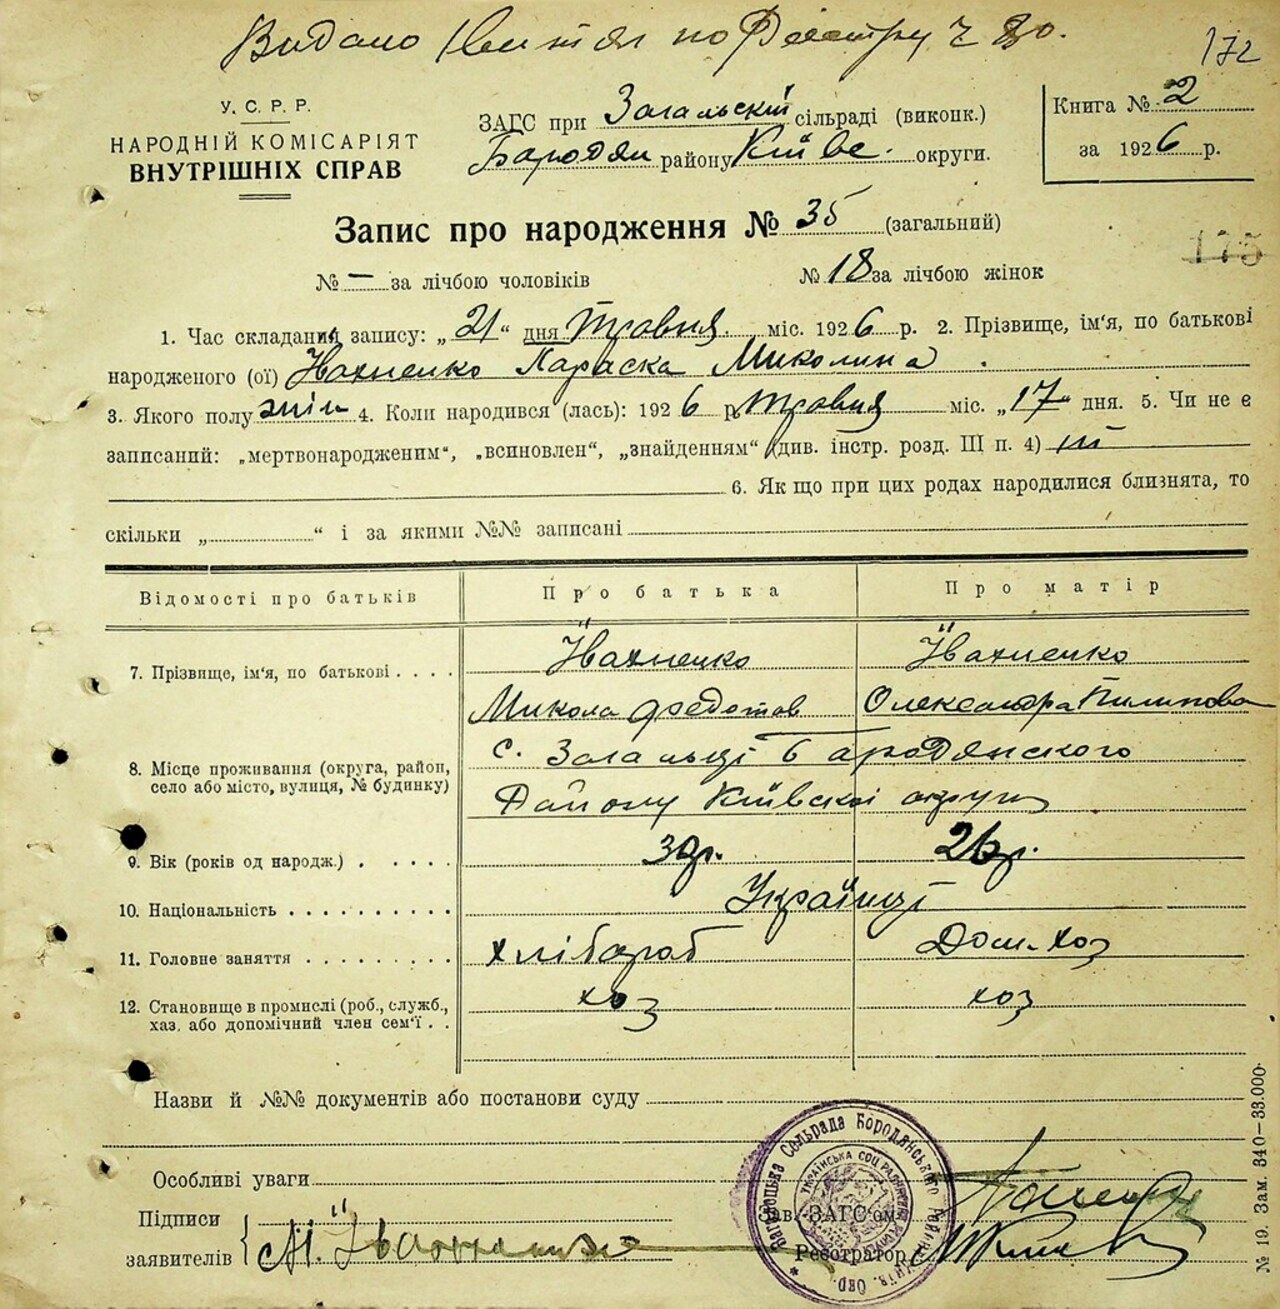 Видано по Реєстру ч 80.
172
У. С. Р. Р.
НАРОДНІЙ КОМІСАРІЯТ
ВНУТРІШНІХ СПРАВ
ЗАГС при Загальській сільраді (виконк.)
Бародян району Київс. округи.
Книга № 2
за 1926 р.
Запис про народження № 35 (загальний)
175
№ — за лічбою чоловіків № 18 за лічбою жінок
1. Час складання запису: „21“ дня Травня міс. 1926 р. 2. Прізвище, ім'я, по батькові
народженого (ої) Івахненко Параска Миколина
3. Якого полу жін 4. Коли народився (лась): 1926 р. Травня міс. „17“ дня. 5. Чи не є
записаний: „мертвонародженим“, „всиновлен“, „знайденням“ (див. інстр. розд. III п. 4)
6. Як що при цих родах народилися близнята, то
скільки „ “ і за якими №№ записані
Відомості про батьків Про батька Про матір
7. Прізвище, ім'я, по батькові . . . . Івахненко Івахненко
Микола Федотов Олександра Пилипова
8. Місце проживання (округа, район,
село або місто, вулиця, № будинку)
с. Загальці Бародянского
Району Київскоі округи
9. Вік (років од народж.) . . . . . 30р. 26р.
10. Національність . . . . . . . . . . Українці
11. Головне заняття . . . . . . . . . хлібороб Дом-хоз
12. Становище в промислі (роб., служб.,
хаз. або допомічний член сем'ї . .
хоз хоз
Назви й №№ документів або постанови суду
Особливі уваги
Підписи
заявителів
М. Івахненко
Зав. ЗАГС'ом
Реєстратор
Сельрада Бородянського
УКРАЇНСЬКА СОЦ РАДЯНСЬКА
№ 19. Зам. 340—33.000·